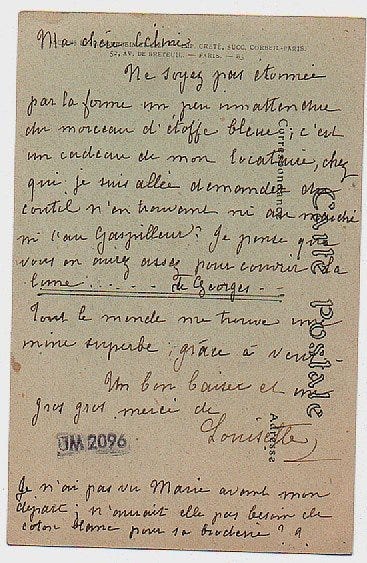 Ma chère Céline
CRÉTÉ, SUCC. CORBEIL-PARIS.
52, AV. DE BRETEUIL. — PARIS. — 83
Ne soyez pas étonnée
par la forme un peu inattendue
du morceau d'étoffe bleue ; c'est
un cadeau de mon locataire, chez
qui je suis allée demander du
coutil n'en trouvant ni au marché
ni "au Gaspilleur". Je pense que
vous en aurez assez pour couvrir la
de Georges
Tout le monde me trouve une
mine superbe, grâce à vous
Un bon baiser et un
gros gros merci de
Louisette
Carte Postale
Correspondance
Adresse
JM 2096
Je n'ai pas vu Marie avant mon
départ ; n'aurait elle pas besoin de
coton blanc pour sa broderie ?